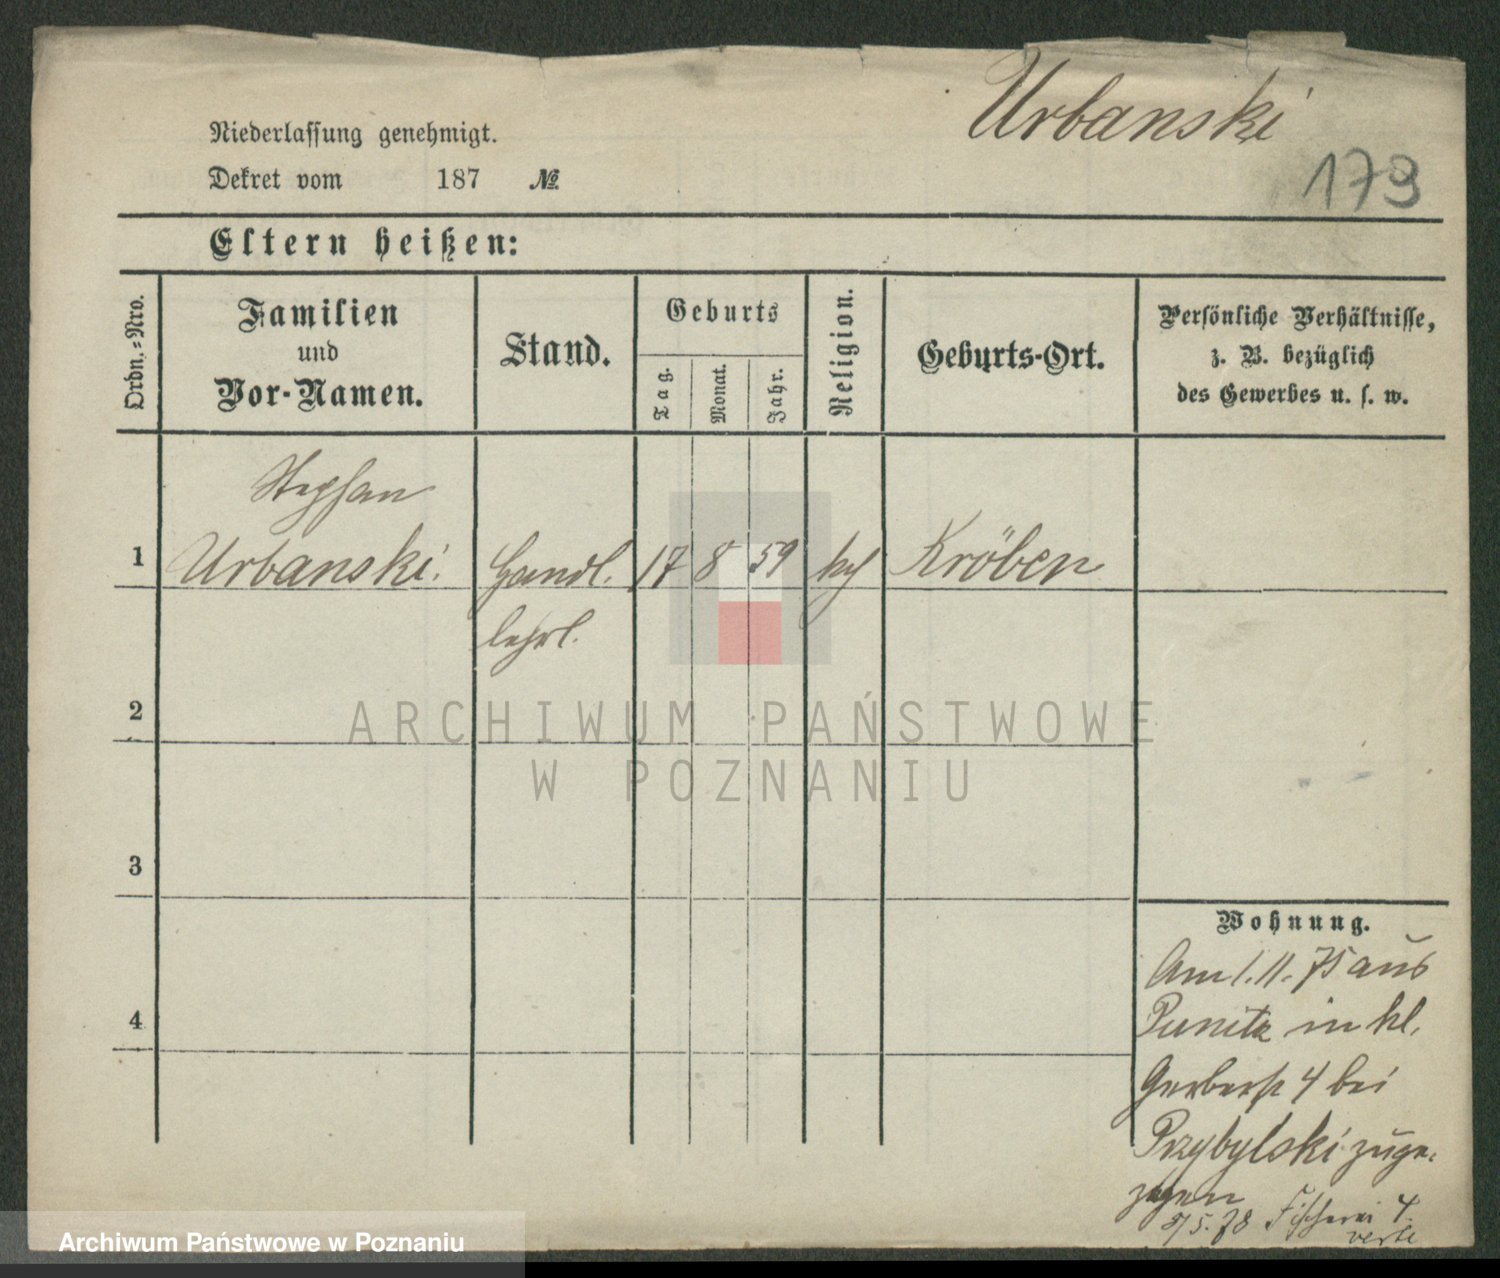 Urbanski
179
Niederlassung genehmigt.
Dekret vom 187 №
Eltern heißen:
Ordn.-Nro.
Familien
und
Vor-Namen.
Stand.
Geburts
Tag.
Monat.
Jahr.
Religion.
Geburts-Ort.
Persönliche Verhältnisse,
z. B. bezüglich
des Gewerbes u. s. w.
Stephan
1 Urbanski. Handl. 17 8 59 Kröben
lehrl.
2
ARCHIWUM PAŃSTWOWE
W POZNANIU
3
4
Wohnung.
Am 1. 11. 75 aus
Punitz in kl.
Gerberst 4 bei
Przybylski zuge-
zogen
5/5. 78 Fischerei 4.
verte
Archiwum Państwowe w Poznaniu